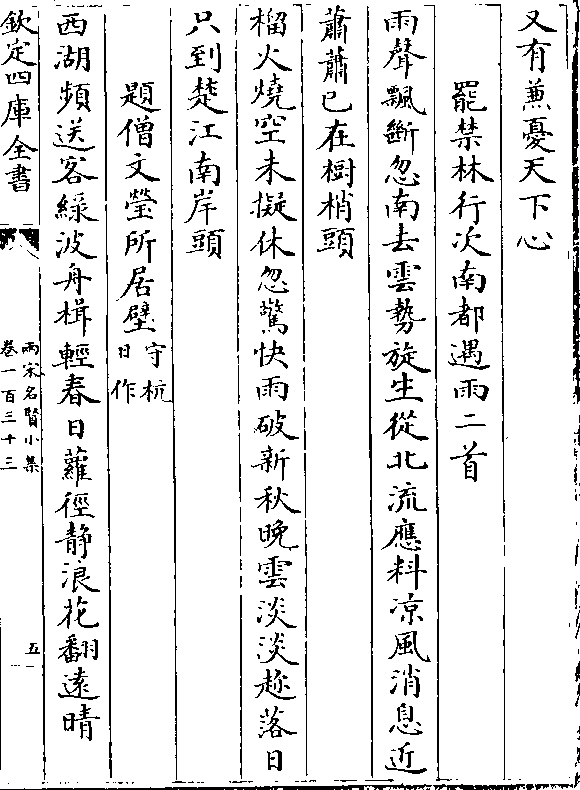 又有蒹憂天下心
罷禁林行次南都遇雨二首
雨聲飄斷忽南去雲勢旋生從北流應料凉風消息近
蕭蕭已在樹梢頭
榴火燒空未擬休忽驚快雨破新秋晚雲淡淡趂落日
只到楚江南岸頭
題僧文瑩所居壁守杭日作
西湖頻送客綠波舟楫輕春日蘿徑静浪花翻遠晴
欽定四庫全書
兩宋名賢小集
卷一百三十三
五